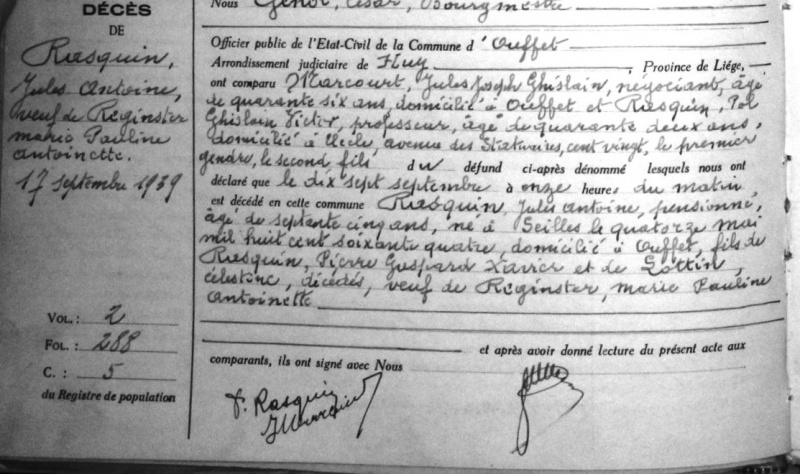 DÉCÈS
DE
Rasquin,
Jules Antoine,
veuf de Reginster
Marie Pauline
Antoinette.
17 septembre 1939
VOL.: 2
FOL.: 288
C.: 5
du Registre de population
Nous Genot, César, Bourgmestre
Officier public de l'Etat-Civil de la Commune d'Ouffet
Arrondissement judiciaire de Huy, Province de Liége,
ont comparu Marcourt, Jules Joseph Ghislain, négociant, âgé
de quarante six ans, domicilié à Ouffet et Rasquin, Pol
Ghislain Victor, professeur, âgé de quarante deux ans,
domicilié à Uccle, avenue des Statuaires, cent vingt, le premier
gendre, le second fils du défund ci-après dénommé lesquels nous ont
déclaré que le dix sept septembre à onze heures du matin,
est décédé en cette commune Rasquin, Jules Antoine, pensionné,
âgé de septante cinq ans, né à Seilles le quatorze mai
mil huit cent soixante quatre, domicilié à Ouffet, fils de
Rasquin, Pierre Gaspard Xavier et de Lottin,
Célestine, décédés, veuf de Reginster, Marie Pauline
Antoinette
et après avoir donné lecture du présent acte aux
comparants, ils ont signé avec Nous
P. Rasquin
J Marcourt